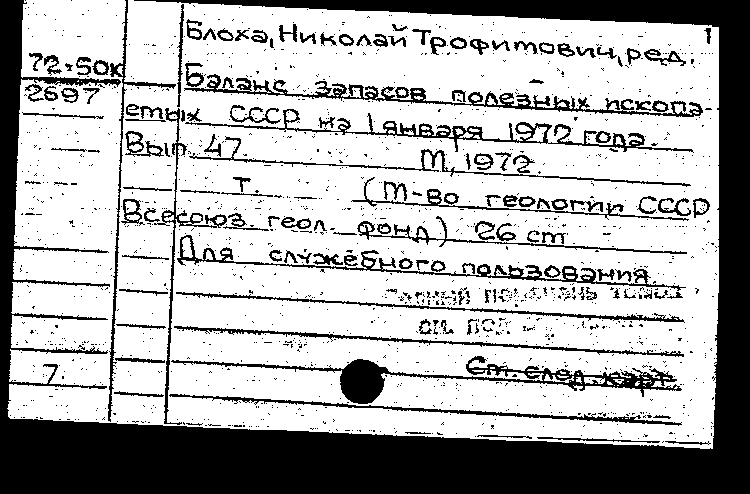 1
Блоха, Николай Трофимович, ред.
72-50к
2697
Баланс запасов полезных ископа-
емых СССР на 1 января 1972 года.
Вып. 47. М, 1972.
т. (М-во геологии СССР
Всесоюз. геол. фонд) 26 cm
Для служебного пользования.
см. под
7.
См. след. карт.